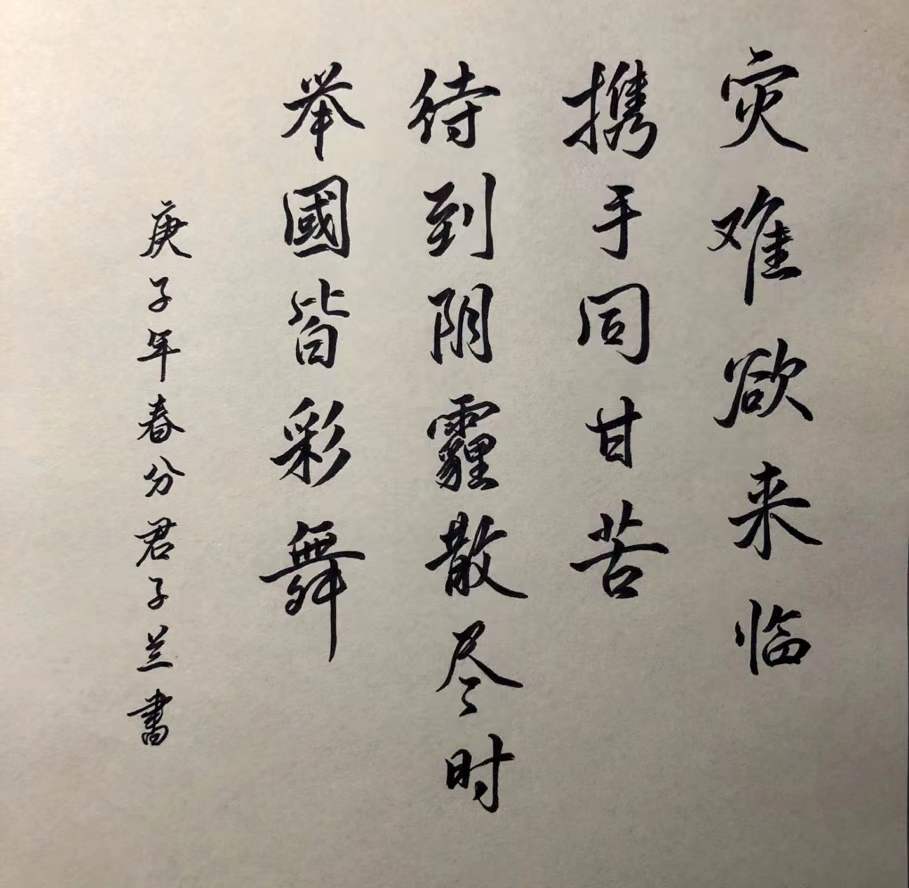 灾难欲来临
携手同甘苦
待到阴霾散尽时
举國皆彩舞
庚子年春分君子兰書